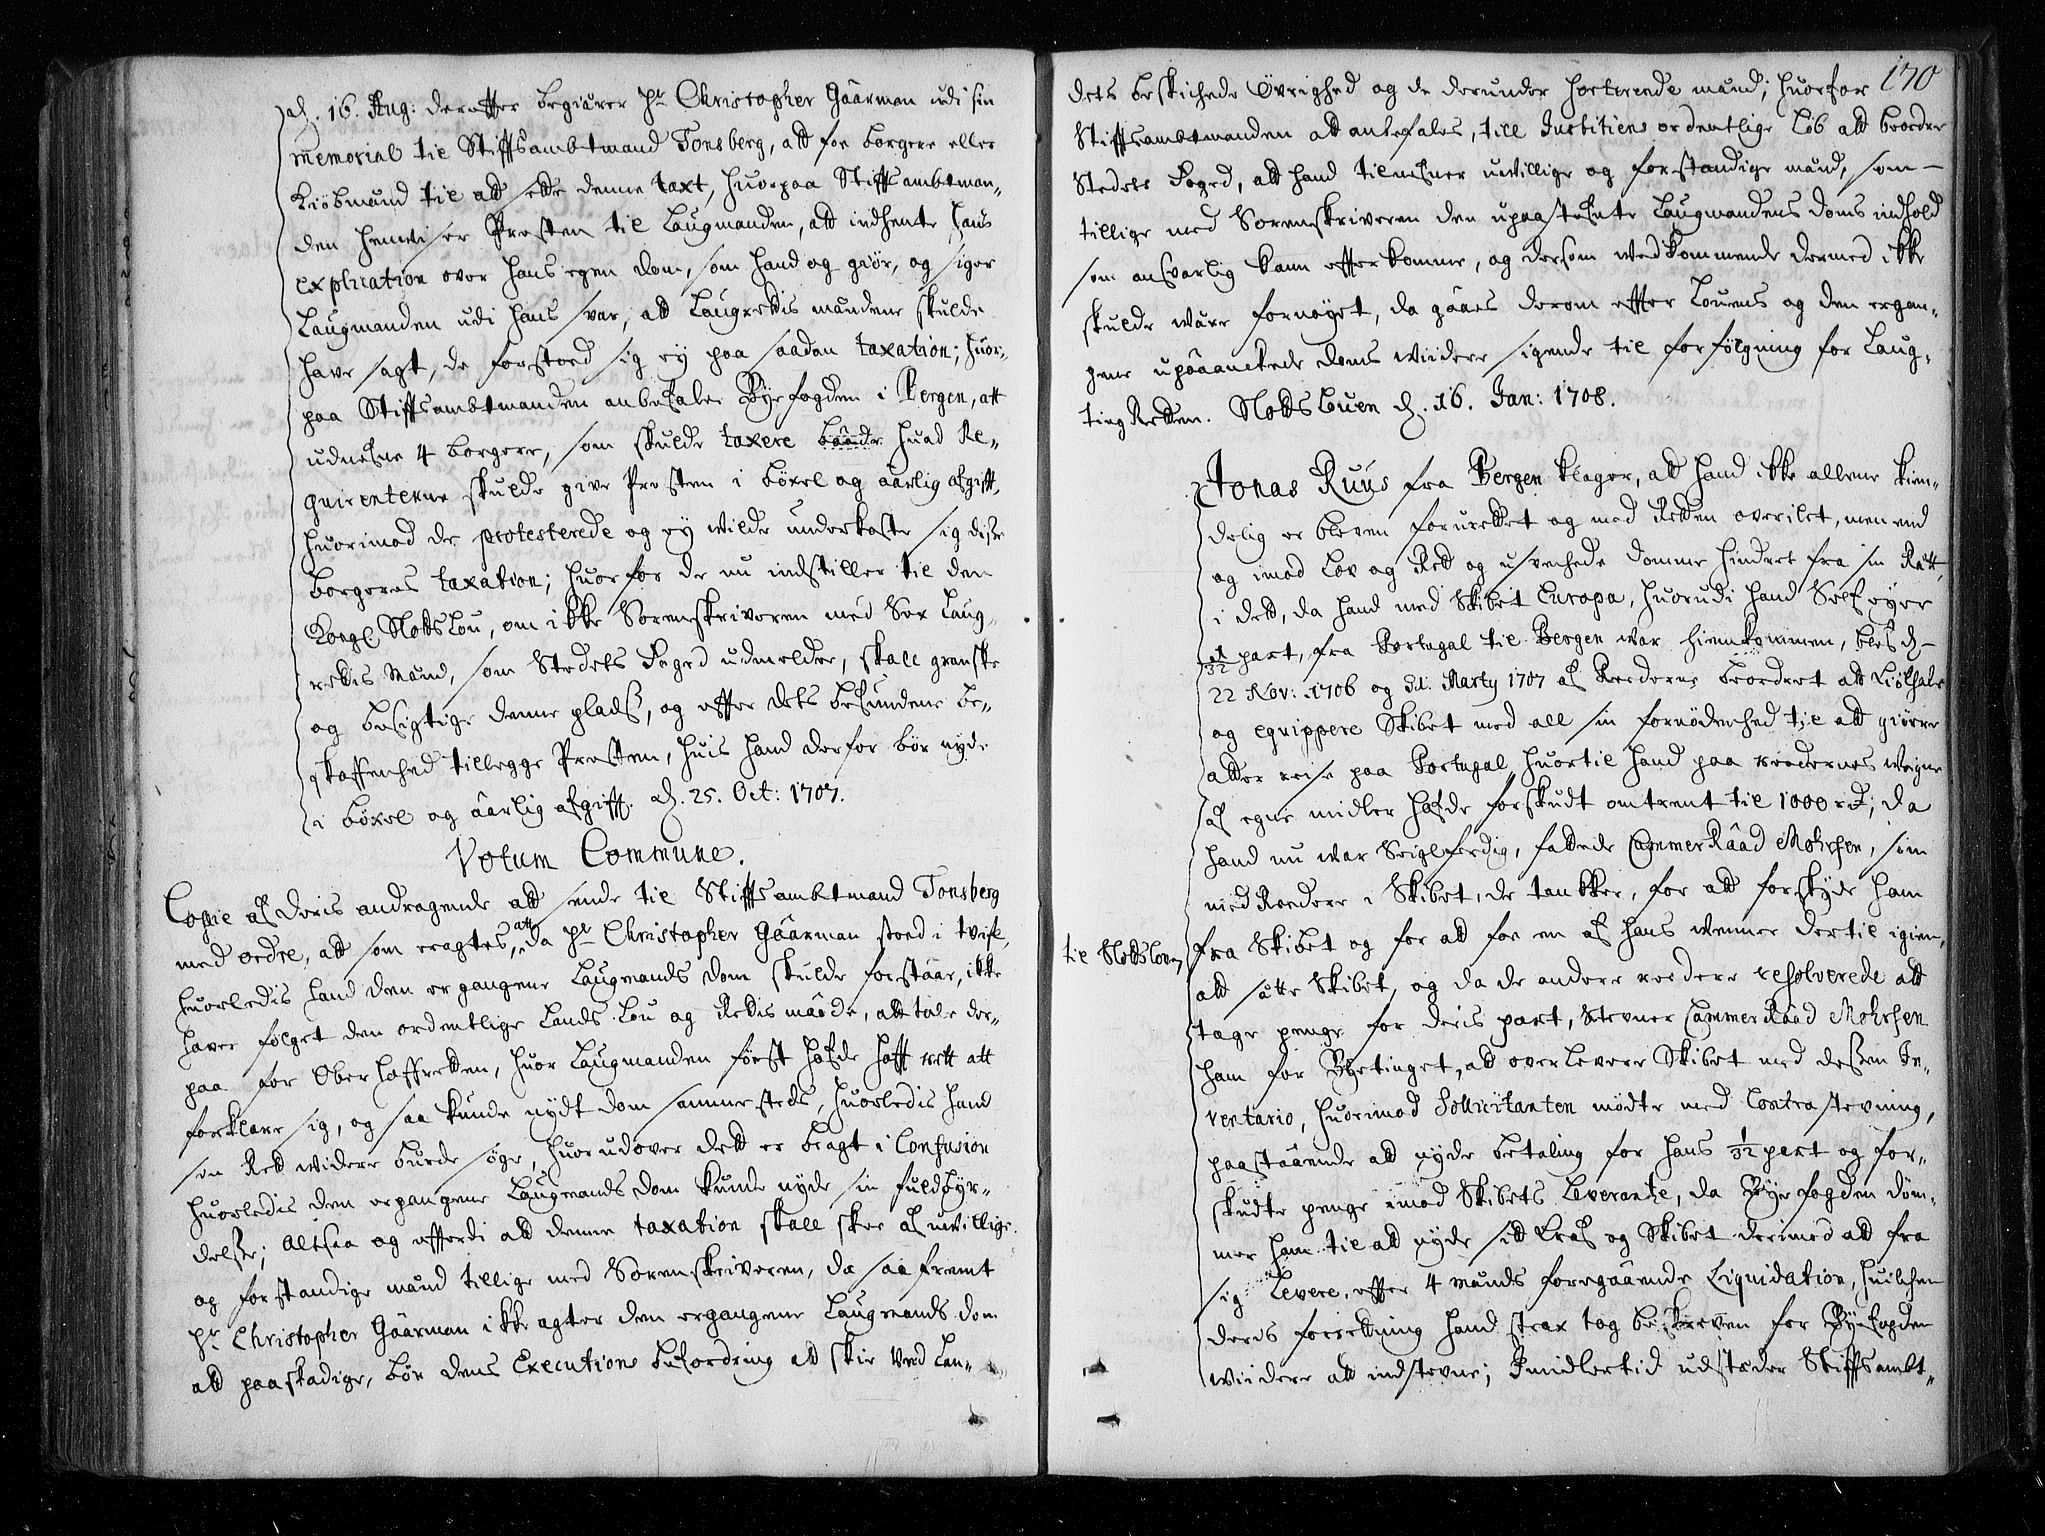 d. 16. Aug: derefter begiærer Hr Christopher Gäärman udi sin
memorial til Stiftsambtmand Tonsberg, att foe borgere eller
Kiöbmænd til att sette denne taxt, huorpaa Stiftsambtman-
den henviser Præsten til Laugmanden, att indhente hans
explication over hans egen dom, som hand og giör, og siger
Laugmanden udi hans svar, att Laugrettis mændene skulde
have sagt, de forstoed sig ey paa saadan taxation; huor-
paa Stiftsambtmanden anbefaler Byefogden i Bergen, att
udnefne 4 borgere, som skulde taxere baade huad Re-
quirenterne skulde give Præsten i böxel og äarlig afgift,
huorimod de protesterede og ey wilde underkaste sig disse
borgeres taxation; huorfor de nu indstiller til den
Kongl. Slotts Lou, om ikke Sorenskriveren med Sex Laug-
rettis Mænd, som Stedets Foged udmelder, skall granske
og besigtige denne pladtz, og effter dets befundene be-
skaffenhed tillegge Præsten, huis hand derfor bör nyde
i böxel og äarlig afgift. d. 25. Oct: 1707.
Votum Commune.
Copie af deris andragende att sende til Stiftsambtmand Tonsberg
med ordre, att som eragtes, att da Hr Christopher Gäärman stoed i tvifl,
huorledis hand den ergangene Laugmands dom skulde forstaae, ikke
haver fölget den ordentlige Lands Lou og Rettis mäade, att tale der-
paa for Ober Hoffretten, huor Laugmanden först hafde hafft rett att
forklare sig, og saa kunde nydt dom sammesteds, huorledis hand
sin Rett widere burde söge, huorudover dett er bragt i Confusion
huorledis den ergangene Laugmands dom kunde nyde sin fuldbyr-
delse; Altsaa og efterdi att denne taxation skall skee af uvillige
og forstandige mænd tillige med Sorenskriveren, da saa fremt
Hr. Christopher Gäärman ikke agter den ergangene Laugmands dom
att paaskadige, bör dens Executions befordring att skie ved Lan-
170
dets beskickede Övrighed og de derunder sorterende mænd; huorfor
Stiftsambtmanden att anbefales, till Justitiens ordentlige Löb att beordre
Stedets Foged, att hand tilnefner uvillige og forstandige mænd, som
tillige med Sorenskriveren den upaastefnte Laugmandens doms indhold
som ansvarlig kann efterkomme, og dersom wedkommende dermed ikke
skulde være fornöyet, da gäaes derom effter Louens og den ergan-
gene upäaanckede doms widere sigende til forfölgning for Laug-
tingRetten. Slotts Louen d. 16. Jan: 1708.
Jonas Ruus fra Bergen klager, att hand ikke allene kien-
delig er bleven foruretted og med Retten overilet, men end
og imod Lov og Rett og usvechede domme hindret fra sin Rett,
i dett, da hand med Skibet Europa, huorudi hand Self eyer
1/32 part, fra Portugal til Bergen war hiemkommen, blef d.
22 Nov: 1706 og 3d. Marty 1707 af Reederne beordret att Kiölhale
og equippere Skibet med all sin fornödenhed til att giörre
atter reise paa Portugal, huortil hand paa reedernes weigne
af egne midler hafde forskudt omtrent til 1000 rd; da
hand nu war Seiglferdig, fattede CammerRäad Mohrsen, som
medReeder i Skibet, de tancker, for att forskyde ham
fra Skibet og for att foe en af hans wenner dertil igien,
til Slottsloven
att sætte Skibet, og da de andere reedere resolverede att
tage penge for deris part, Stevner CammerRäad Mohrsen
ham for Byetinget, att overlevere Skibet med dessen In-
ventario, huorimod Sollicitanten mödte med Contrastevning,
paastäaende att nyde betaling for hans 1/32 part og for-
skudte penge imod Skibets Leverantze, da Byefogden döm-
mer ham til att nyde sitt Kraf og Skibet derimod att fra
sig Levere, effter 4 Mænds foregäaende Liquidation, huilchen
deres forretning hand strax tog beskreven for Byefogden
widere att indstevne; Imidlertid udsteder Stiftsambt-